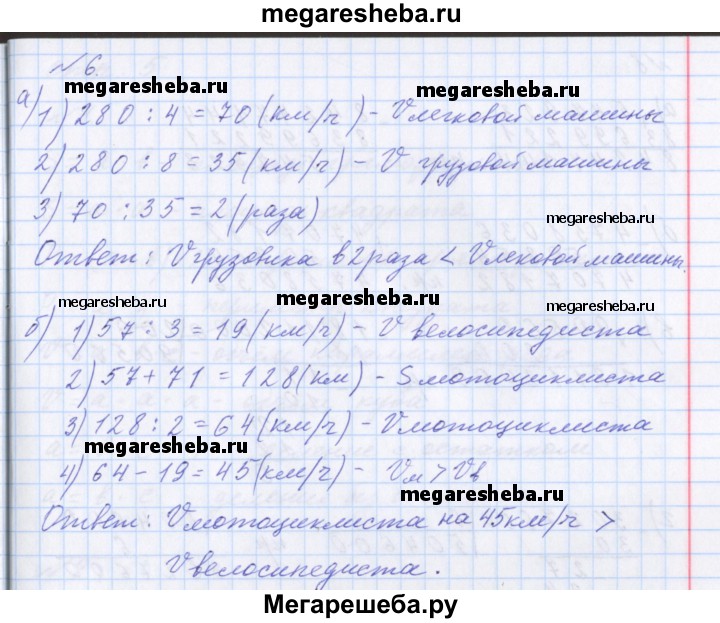 megaresheba.ru
№ 6.
megaresheba.ru
а) 1) 280 : 4 = 70 (км/ч) - V легковой машины
2) 280 : 8 = 35 (км/ч) - V грузовой машины
3) 70 : 35 = 2 (раза)
megaresheba.ru
Ответ: V грузовика в 2 раза < V лековой машины.
megaresheba.ru
megaresheba.ru
б) 1) 57 : 3 = 19 (км/ч) - V велосипедиста
2) 57 + 71 = 128 (км) - S мотоциклиста
3) 128 : 2 = 64 (км/ч) - V мотоциклиста
megaresheba.ru
4) 64 - 19 = 45 (км/ч) - Vм > Vв
megaresheba.ru
Ответ: V мотоциклиста на 45 км/ч >
V велосипедиста.
Мегарешеба.ру